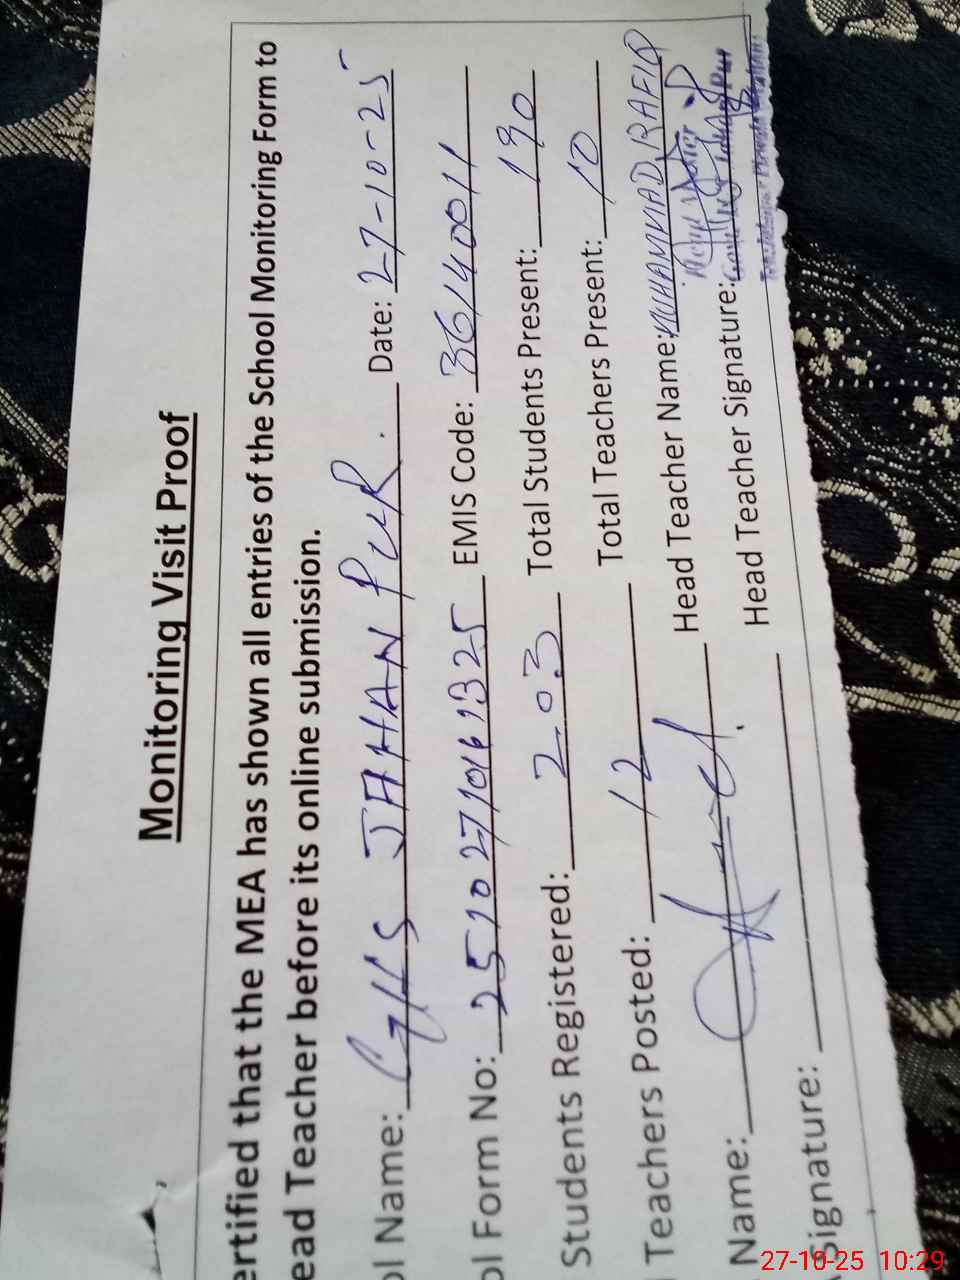 Monitoring Visit Proof
ertified that the MEA has shown all entries of the School Monitoring Form to
ead Teacher before its online submission.
ol Name: GHS JAHAN PUR. Date: 27-10-25
ol Form No: 25102710161325 EMIS Code: 36140011
Students Registered: 203 Total Students Present: 190
Teachers Posted: 12 Total Teachers Present: 10
Name: Head Teacher Name: MUHAMMAD RAFIQ
Signature: Head Teacher Signature:
27-10-25 10:29